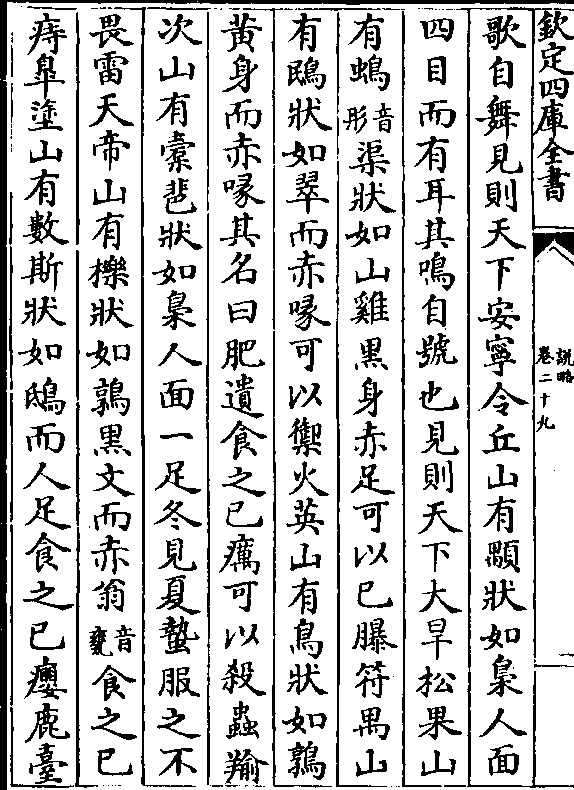 欽定四庫全書
說略
卷二十九
歌自舞見則天下安寧令丘山有顒狀如梟人面
四目而有耳其鳴自號也見則天下大旱松果山
有螐音彤渠狀如山雞黑身赤足可以已䑋符禺山
有鴖狀如翠而赤喙可以禦火英山有鳥狀如鶉
黃身而赤喙其名曰肥遺食之已癘可以殺蟲羭
次山有橐𩇯狀如梟人面一足冬見夏蟄服之不
畏雷天帝山有櫟狀如鶉黑文而赤翁音甕食之已
痔臯塗山有數斯狀如鴟而人足食之已癭鹿臺